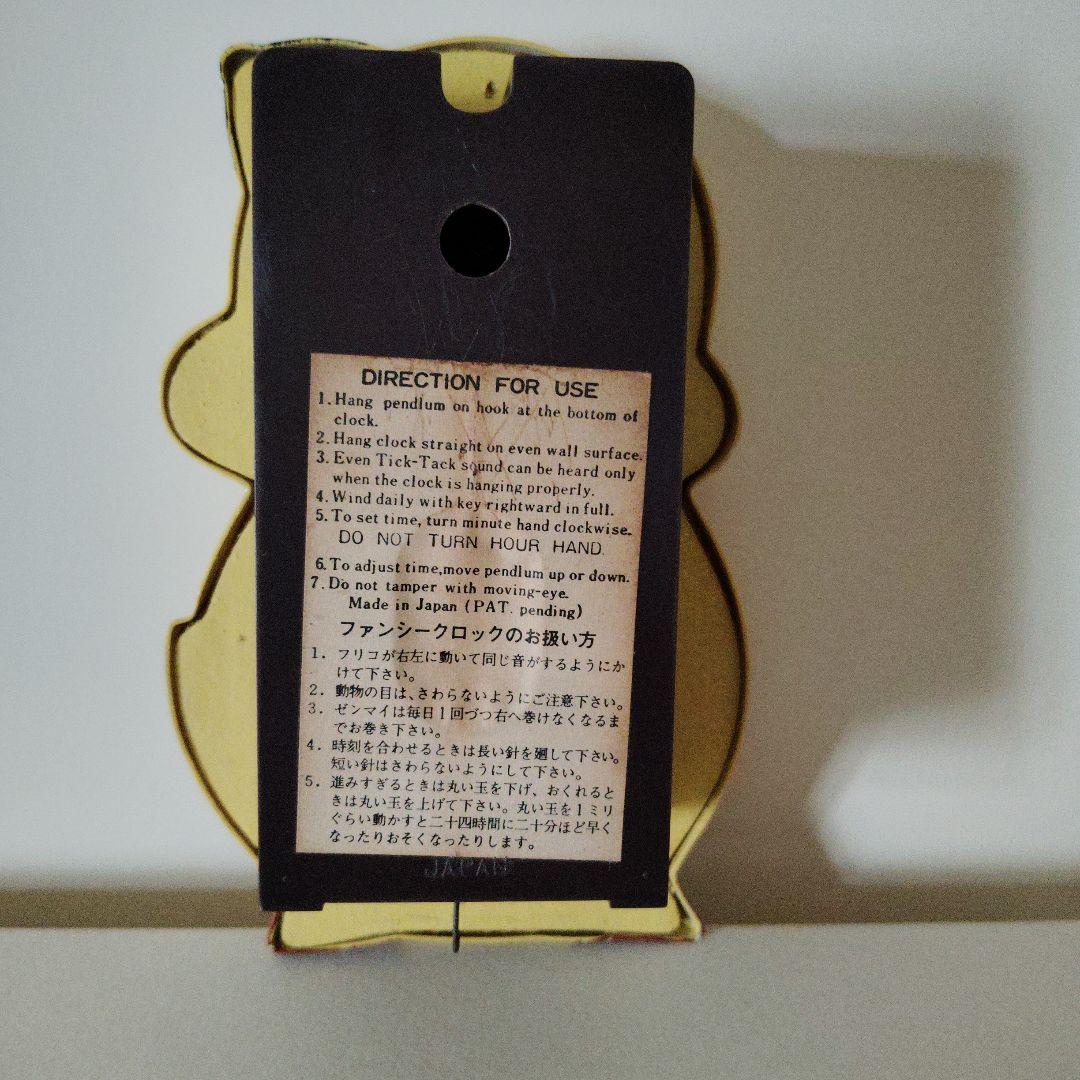 DIRECTION FOR USE
1. Hang pendlum on hook at the bottom of
clock.
2. Hang clock straight on even wall surface.
3. Even Tick-Tack sound can be heard only
when the clock is hanging properly.
4. Wind daily with key rightward in full.
5. To set time, turn minute hand clockwise.
DO NOT TURN HOUR HAND.
6. To adjust time, move pendlum up or down.
7. Do not tamper with moving-eye.
Made in Japan (PAT. pending)
ファンシークロックのお扱い方
1. フリコが右左に動いて同じ音がするようにか
けて下さい。
2. 動物の目は、さわらないようにご注意下さい。
3. ゼンマイは毎日1回づつ右へ巻けなくなるま
でお巻き下さい。
4. 時刻を合わせるときは長い針を廻して下さい。
短い針はさわらないようにして下さい。
5. 進みすぎるときは丸い玉を下げ、おくれると
きは丸い玉を上げて下さい。丸い玉を1ミリ
ぐらい動かすと二十四時間に二十分ほど早く
なったりおそくなったりします。
JAPAN